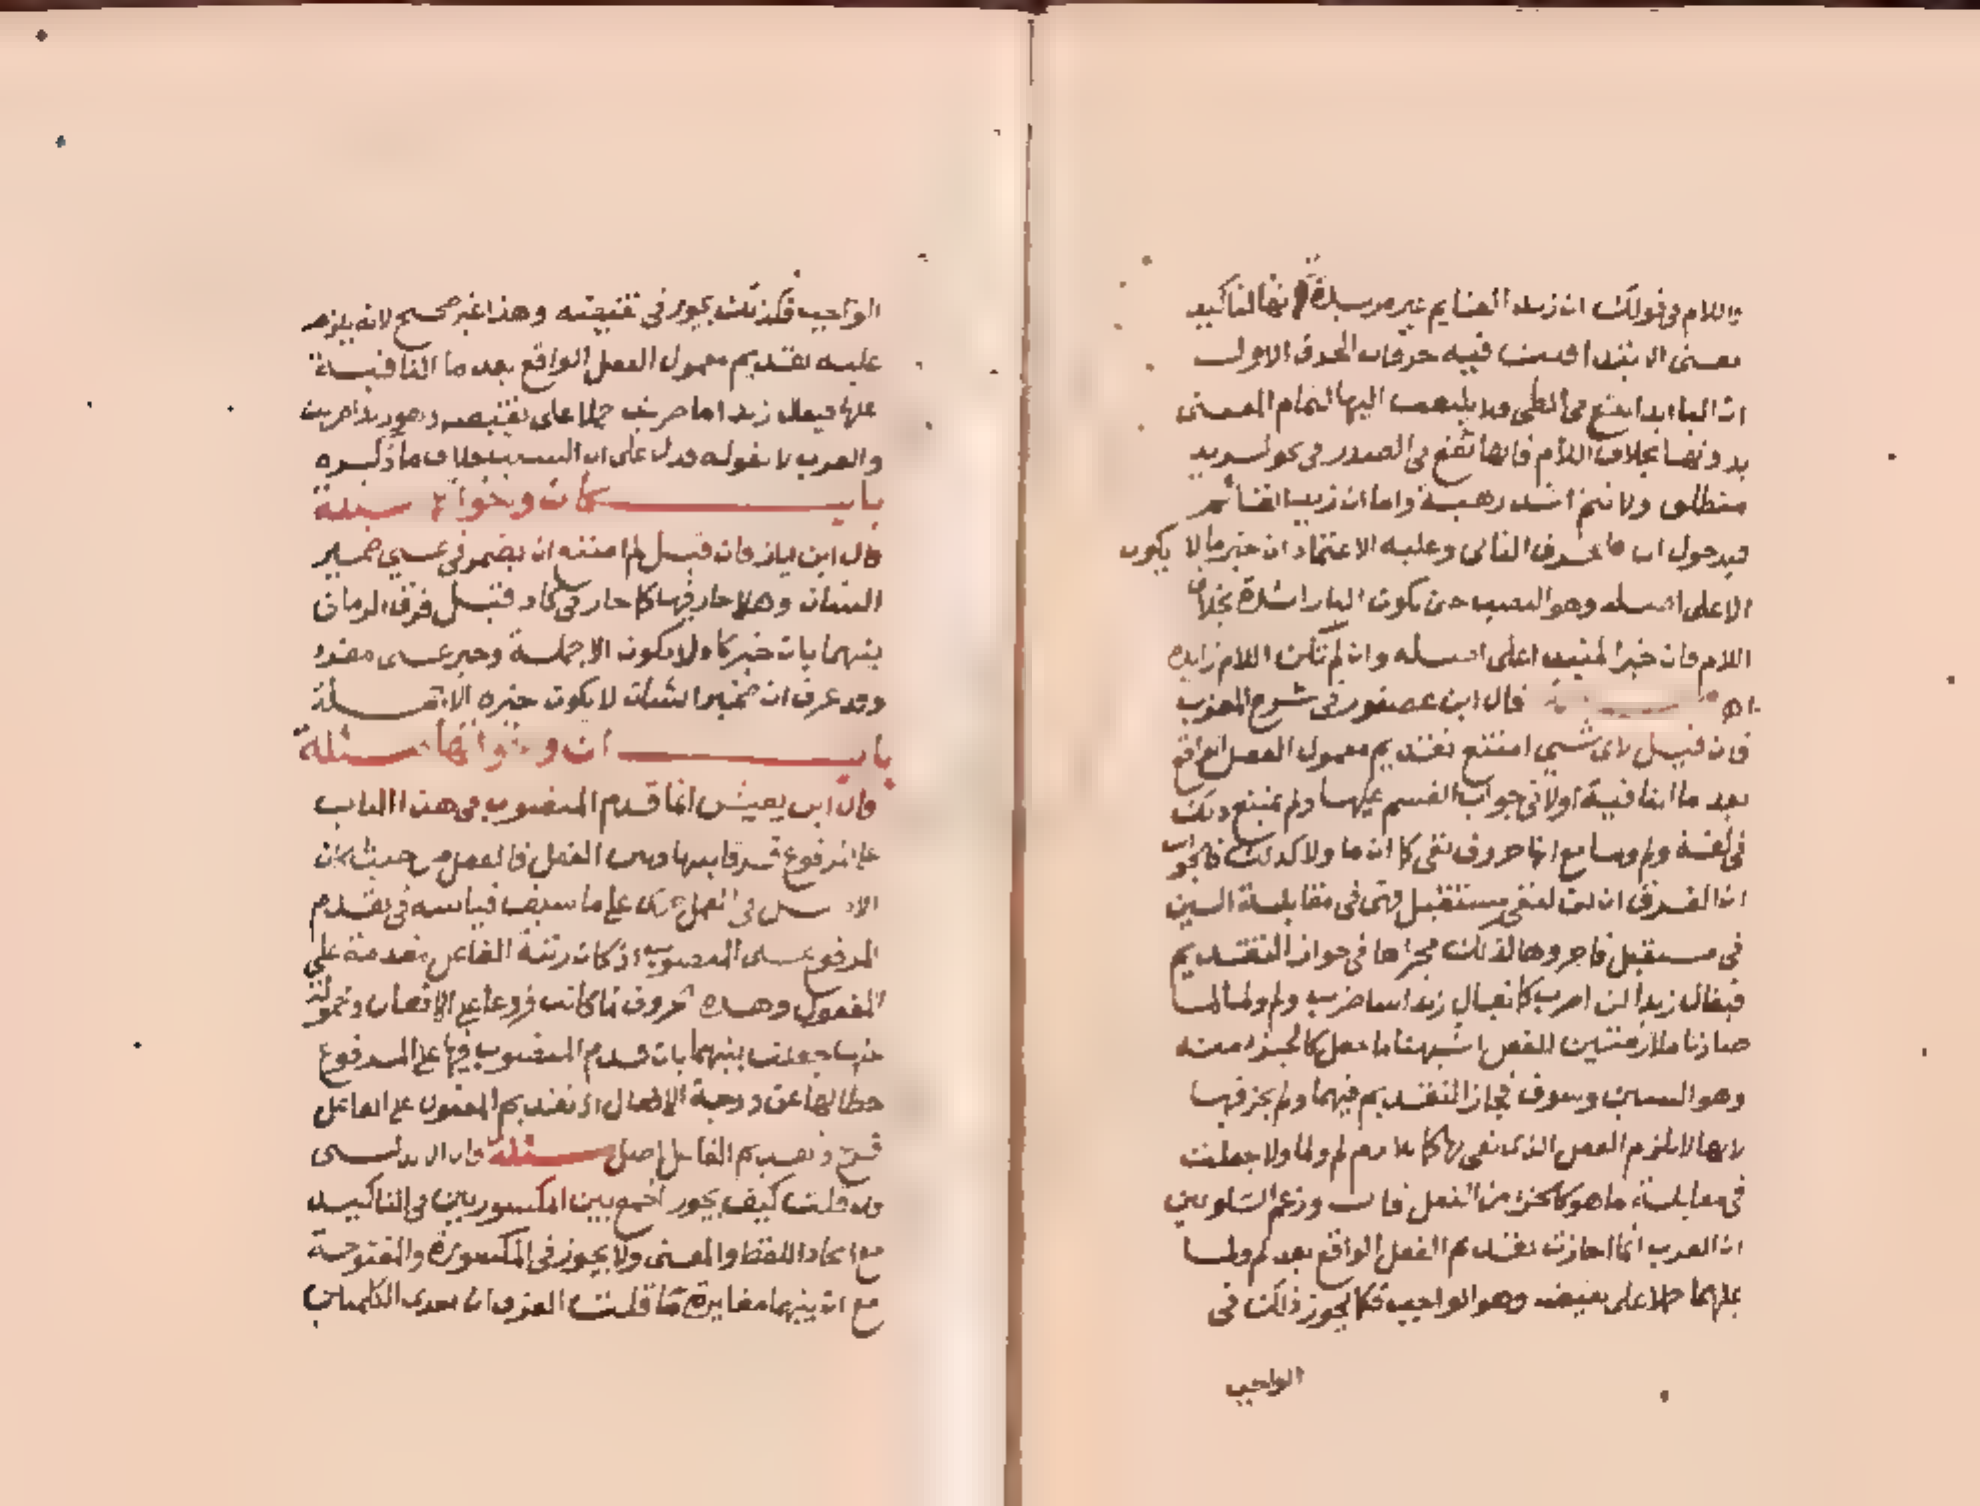 واللام في قولك ان زيدا لقايم غير مزيدة لانها لتاكيد
معنى الابتدا فليست فيه حرفان الحرف الاول
ان البا ابدا تقع في الطي ولا يلتفت اليها لتمام المعنى
بدونها بخلاف اللام فانها تقع في الصدر في نحو لزيد
منطلق ولانتم اشد رهبة واما ان زيدا لقائم
الاعلى اصله وهو النصب حتى تكون البا زائدة بخلاف
اللام فان خبر المبتدا على اصله وان لم تكن اللام زايدة
قال ابن عصفور في شرح المقرب
فان قيل لاي شي امتنع تقديم معمول الفعل الواقع
بعد ما النافية او لا في جواب القسم عليها ولم يمتنع ذلك
في لن ولم ولما مع انها حروف نفي كما ان ما ولا كذلك فالجواب
ان الفرق ان لن لنفي مستقبل فهي في مقابلة السين
في مستقبل فاجروها لذلك مجراها في جواز التقديم
فيقال زيدا لن اضرب كما تقول زيدا ساضرب ولم ولما لما
صارتا ملازمتين للفعل اشبهتا ما جعل كالجزء منه
وهو السين وسوف فجاز التقديم فيهما ولم يجز في ما
لانها لا تلزم الفعل الذي نفي بها كما يلازم لم ولما ولا جعلت
في مقابلة ما هو كالجزء من الفعل قال وزعم الشلوبين
ان العرب انما اجازت تقديم الفعل الواقع بعد لم ولما
عليهما حملا على نقيضه وهو الواجب فكما يجوز ذلك في
الواجب
الواجب فكذلك يجوز في نقيضه وهذا غير صحيح لانه يلزم
عليه تقديم معمول الفعل الواقع بعد ما النافية
عليها فيقال زيدا ما ضربت حملا على نقيضه وهو زيدا ضربت
والعرب لا تقوله فدل على ان السبب خلاف ما ذكره
باب كان واخواتها مسئلة
قال ابن اياز فان قيل لم امتنع ان يضمر في عسى ضمير
الشان وهلا جاز فيها كما جاز في كاد قيل فرق الرماني
بينهما بان خبر كاد لا يكون الا جملة وخبر عسى مفرد
وقد عرف ان ضمير الشان لا يكون خبره الا جملة
باب ان واخواتها مسئلة
قال ابن يعيش انما قدم المنصوب في هذا الباب
على المرفوع فرقا بينها وبين الفعل فالفعل من حيث كان
الاصل في العمل جرى على ما سبق قياسه في تقدم
المرفوع على المنصوب اذ كان رتبة الفاعل مقدمة على
المفعول وهذه الحروف لما كانت فروعا على الافعال ومحمولة
عليها جعلت بينهما بان قدم المنصوب فيها على المرفوع
حطا لها عن درجة الافعال اذ تقديم المفعول على الفاعل
فرع وتقديم الفاعل اصل مسئلة قال الاندلسي
فان قلت كيف يجوز الجمع بين المكسورتين في التاكيد
مع اتحاد اللفظ والمعنى ولا يجوز في المكسورة والمفتوحة
مع ان بينهما مغايرة ما قلت الفرق ان احدى الكلمتين